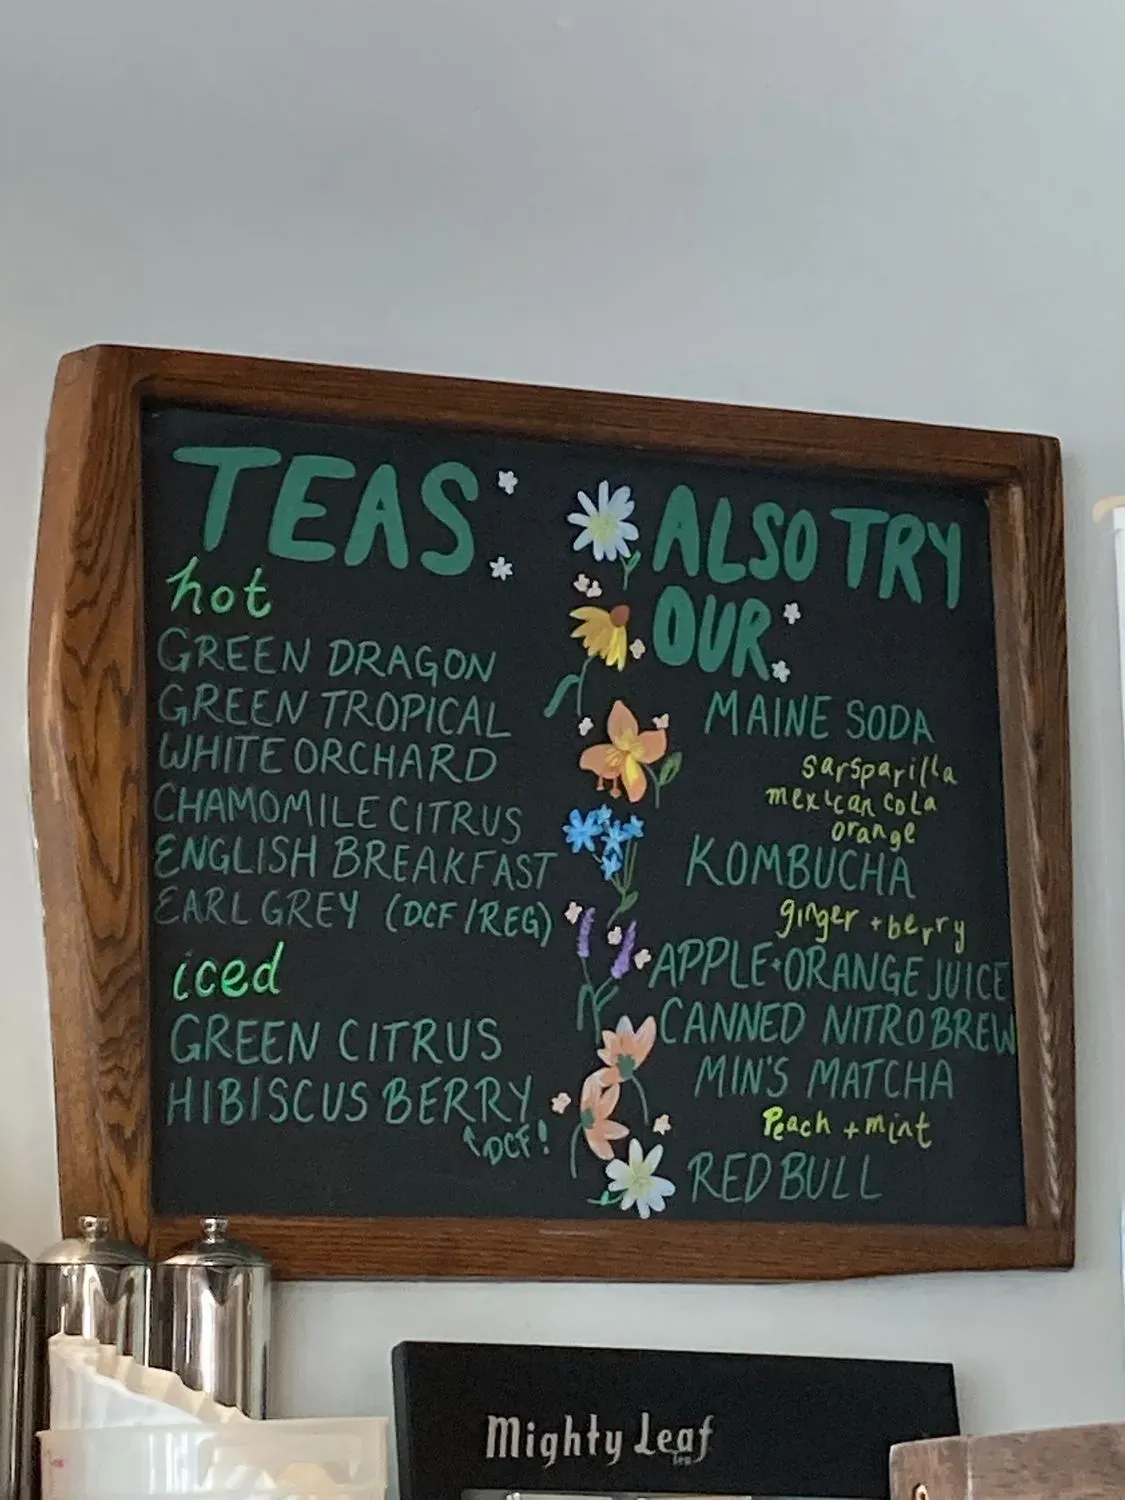 TEAS
hot
GREEN DRAGON
GREEN TROPICAL
WHITE ORCHARD
CHAMOMILE CITRUS
ENGLISH BREAKFAST
EARL GREY (DCF/REG)
iced
GREEN CITRUS
HIBISCUS BERRY
DCF!
ALSO TRY
OUR
MAINE SODA
sarsparilla
mexican cola
orange
KOMBUCHA
ginger + berry
APPLE·ORANGE JUICE
CANNED NITRO BREW
MIN'S MATCHA
Peach + mint
RED BULL
Mighty Leaf
tea